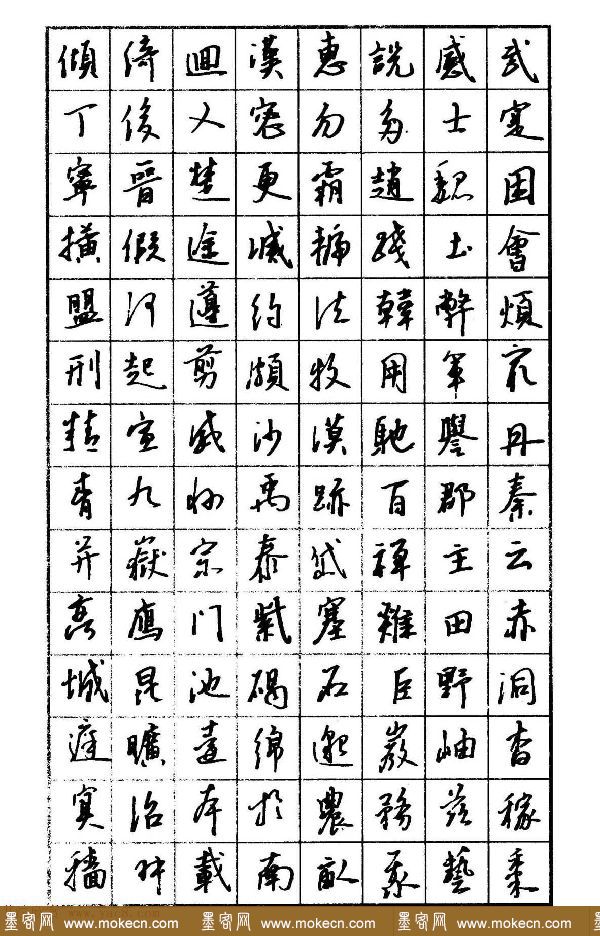 傾綺迴漢惠說感武
丁俊乂密勿多士寔
寧晉楚更霸趙魏困
橫假途滅虢踐土會
盟何遵約法韓弊煩
刑起剪頗牧用軍最
精宣威沙漠馳譽丹
青九州禹跡百郡秦
并嶽宗泰岱禪主云
亭雁门紫塞雞田赤
城昆池碣石巨野洞
庭曠遠綿邈巖岫杳
冥治本於農務茲稼
穡俶載南畝我藝黍
墨客网 www.mokecn.com 墨客网 www.mokecn.com 墨客网 www.mokecn.com